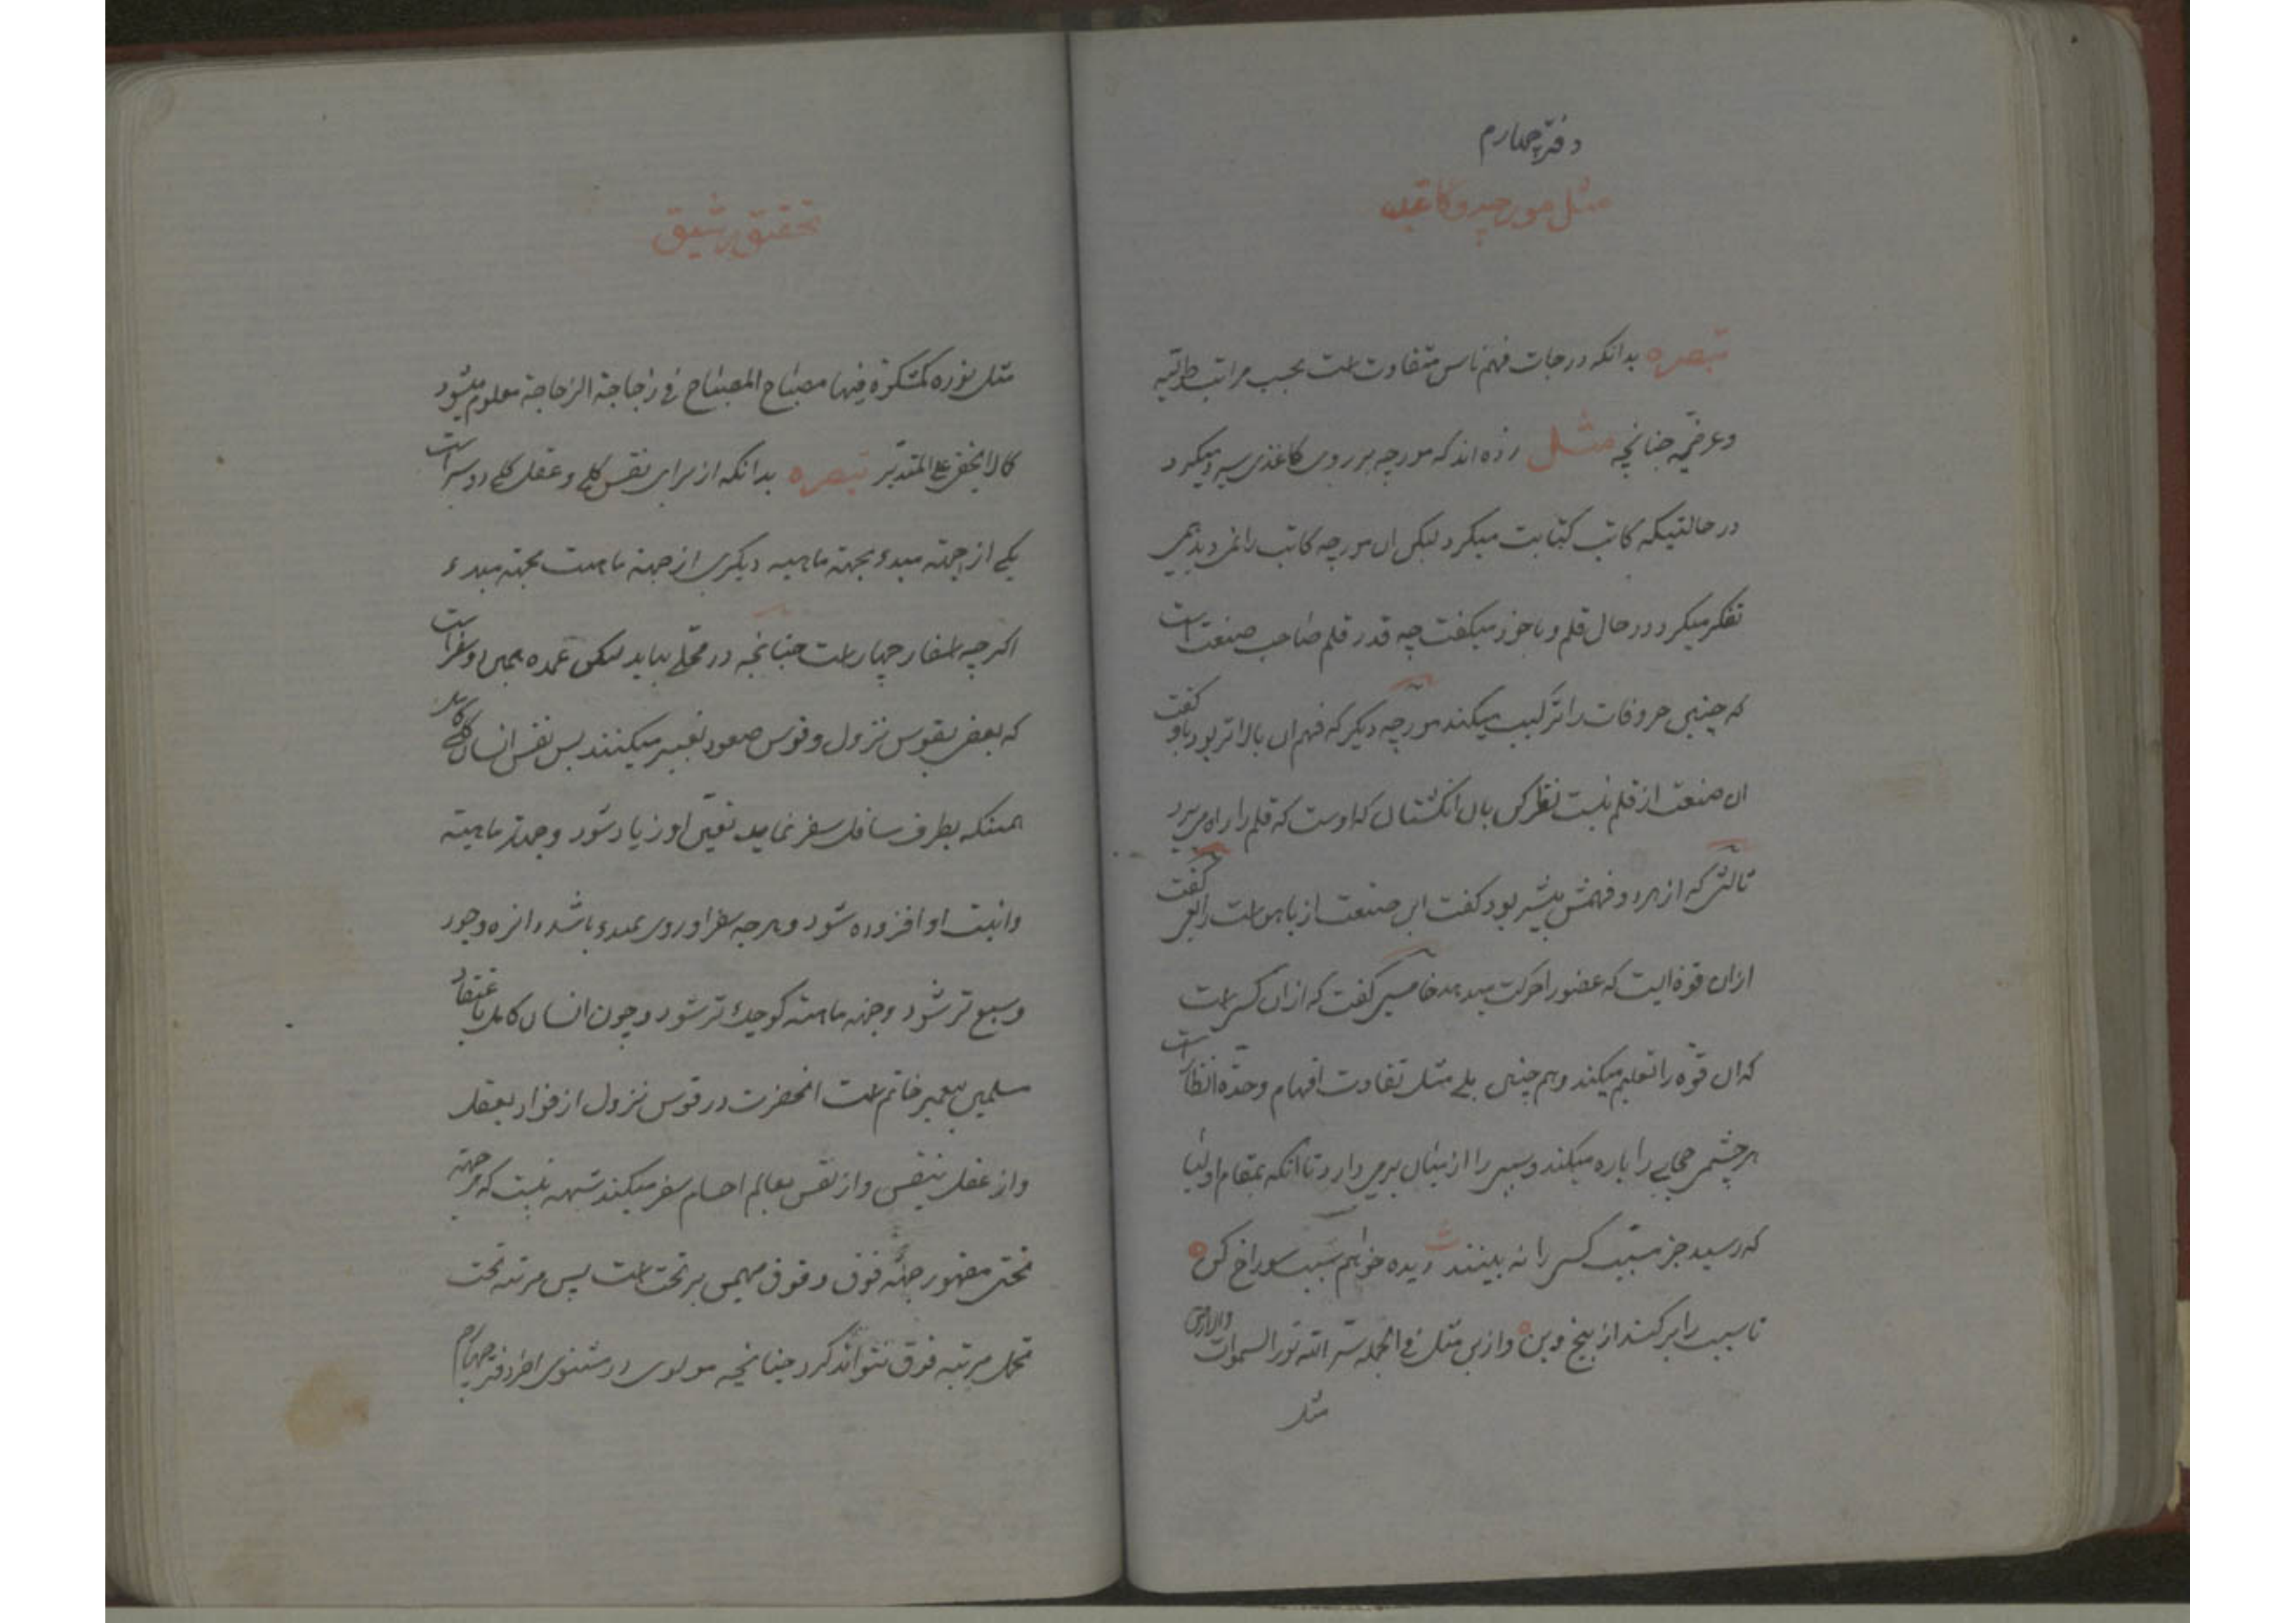 دفتر چهارم
مثل مورچه و کاغذ
تبصره بدانکه درجات فهم ناس متفاوت است بحسب مراتب طولیه
و عرضیه چنانچه مثل زده‌اند که مورچه بر روی کاغذی سیر میکرد
در حالتیکه کاتب کتابت میکرد لیکن ان مورچه کاتب را نمی دید همی
تفکر میکرد در حال قلم و با خود میکفت چه قدر قلم صاحب صنعت است
که چنین حروفات را ترکیب میکند مورچه دیکر که فهم ان بالاتر بود باو کفت
ان صنعت از قلم نیست نظر کن بان انکشتان که اوست که قلم را راه می برد
ثالثی که از هر دو فهمش بیشتر بود کفت این صنعت از بازو است رابعی کفت
از ان قوه ایست که عضو را حرکت میدهد خامسی کفت که از ان کسی است
که ان قوه را تعلیم میکند و هم چنین بلی مثل تفاوت افهام وحدة انظار است
هر چشمی حجابی را پاره میکند و سببی را از میان بر می دارد تا انکه بمقام اولیا
که رسید جز مسبب کسی را نه بینند دیده خواهم سبب سوراخ کن
تا سبب را بر کند از بیخ و بن و ازین مثل فی الجمله سر الله نور السموات والارض
مثل
تحقیق رشیق
مثل نوره کمشکوة فیها مصباح المصباح فی زجاجة الزجاجة معلوم میشود
کما لا یخفی علی المتدبر تبصره بدانکه از برای نفس کلی و عقل کلی دو سیر است
یکی از جهته مبدء بجهته ماهیه دیکری از جهته ماهیت بجهته مبدء
اکر چه اسفار چهار است چنانچه در محلی بیاید لیکن عمده همین دو سفر است
که بعضی بقوس نزول و قوس صعود تعبیر میکنند پس نفس انسان کامل
همینکه بطرف سافل سفر نماید تعین او زیاد شود و جهته ماهیته
و انیت او افزوده شود و هر چه سفر او روی بمبدء باشد دائره وجود
وسیع تر شود و جهته ماهیته کوچک تر شود و چون انسان کامل باعتقاد
مسلمین پیغمبر خاتم است انحضرت در قوس نزول از فواد بعقل
و از عقل بنفس و از نفس بعالم اجسام سفر میکند شبهه نیست که هر جهته
تحتی مقهور جهته فوق و فوق مهیمن بر تحت است پس مرتبه تحت
تحمل مرتبه فوق نتواند کرد چنانچه مولوی در مثنوی اخر دفتر چهارم